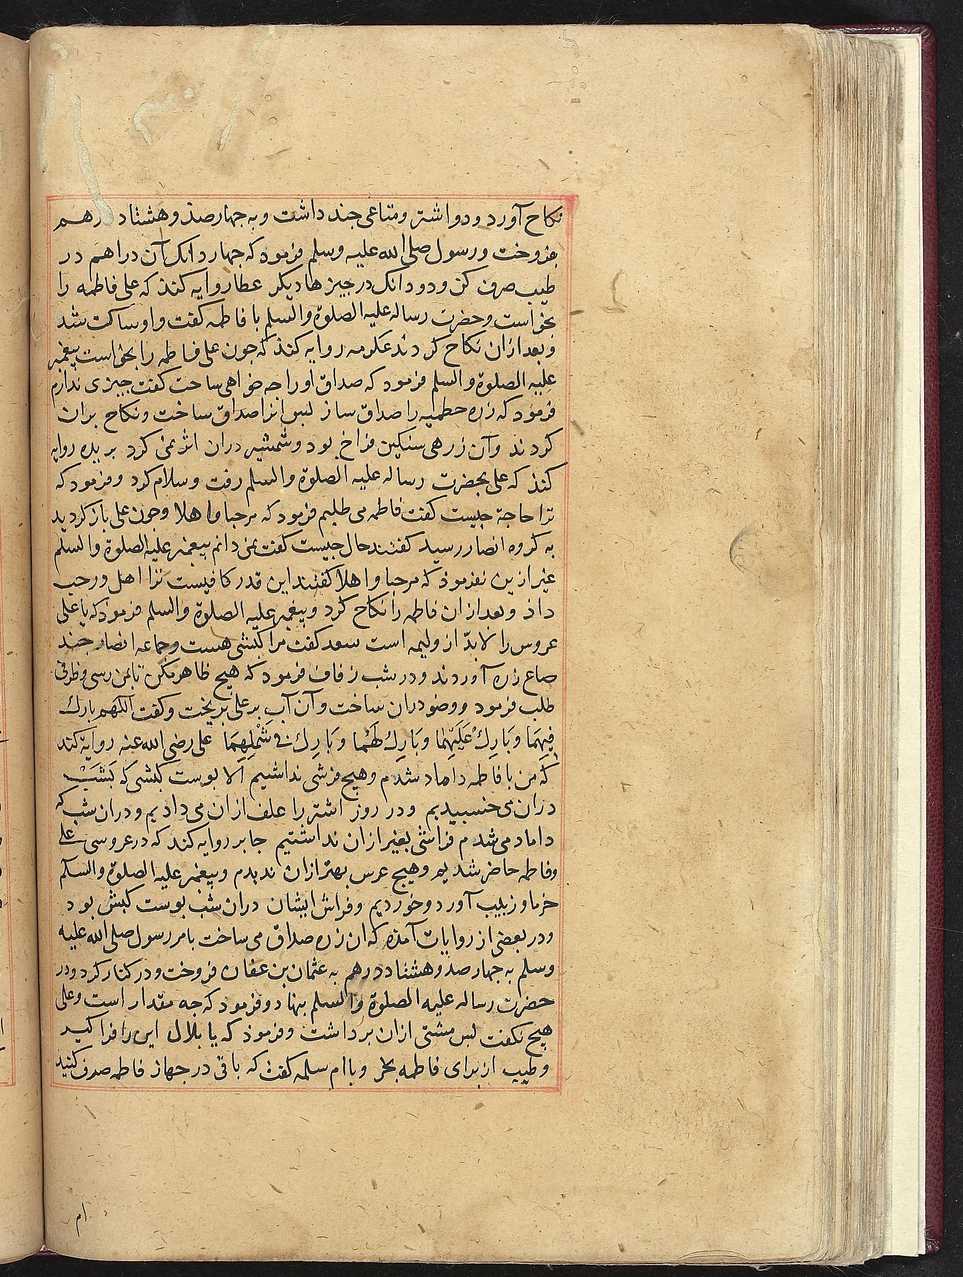 نكاح آورد ودو اشتر ومتاعى جند داشت وبه جهار صد وهشتاد درهم
بفروخت ورسول صلى الله عليه وسلم فرمود كه جهار دانك آن دراهم در
طيب صرف كن ودو دانك در جيزها ديكر عطا روايه كند كه على فاطمه را
بخواست وحضرت رساله عليه الصلوة والسلم با فاطمه كفت واو ساكت شد
وبعد ازان نكاح كردند عكرمه روايه كند كه جون على فاطمه را بخواست بيغمبر
عليه الصلوة والسلم فرمود كه صداق او را جه خواهى ساخت كفت جيزى ندارم
فرمود كه زره حطميه را صداق ساز بس انرا صداق ساخت ونكاح بران
كردند وآن زرهى سنكين فراخ بود وشمشير دران اثر نمى كرد بريده روايه
كند كه على بحضرت رساله عليه الصلوة والسلم رفت وسلام كرد وفرمود كه
ترا حاجة جيست كفت فاطمه مى طلبم فرمود كه مرحبا واهلا وجون على باز كرديد
به كروه انصار رسيد كفتند حال جيست كفت نمى دانم بيغمبر عليه الصلوة والسلم
غير ازين نفرمود كه مرحبا واهلا كفتند اين قدر كافيست ترا اهل ورحب
داد وبعد ازان فاطمه را نكاح كرد وبيغمبر عليه الصلوة والسلم فرمود كه يا على
عروس را لابد از وليمه است سعد كفت مرا كبشى هست وجماعه انصار جند
صاع زره آوردند ودر شب زفاف فرمود كه هيج ظاهر مكن تا بمن رسى وظرفى
طلب فرمود ووضو دران ساخت وآن آب بر على بريخت وكفت اللهم بارك
فِيهِمَا وبَارِكْ عَلَيْهِمَا وبَارِكْ لَهُمَا وبَارِكْ فى شَمْلِهِمَا على رضى الله عنه روايه كند
كه من با فاطمه داماد شدم وهيج فرشى نداشيم الا بوست كبشى كه بَشَبْ
دران مى خسبيديم ودر روز اشتر را علف ازان مى داديم ودران شب كه
داماد مى شدم فراشى بغير ازان نداشتيم جابر روايه كند كه در عروسى على
وفاطمه حاضر شديم وهيج عرس بهتر ازان نديدم وبيغمبر عليه الصلوة والسلم
خرما وزبيب آورد وخورديم وفراش ايشان دران شب بوست كبش بود
ودر بعضى از روايات آمده كه ان زره صداق مى ساخت بامر رسول صلى الله عليه
وسلم به جهار صد وهشتاد درهم به عثمان بن عفان فروخت ودر كنار كرد ودر
حضرت رساله عليه الصلوة والسلم بنهاد وفرمود كه جه مقدار است وعلى
هيج نكفت بس مشتى ازان برداشت وفرمود كه يا بلال اين را فراكير
وطيب از براى فاطمه بخر وبا ام سلمه كفت كه باقى در جهاز فاطمه صرف كنيد
ام